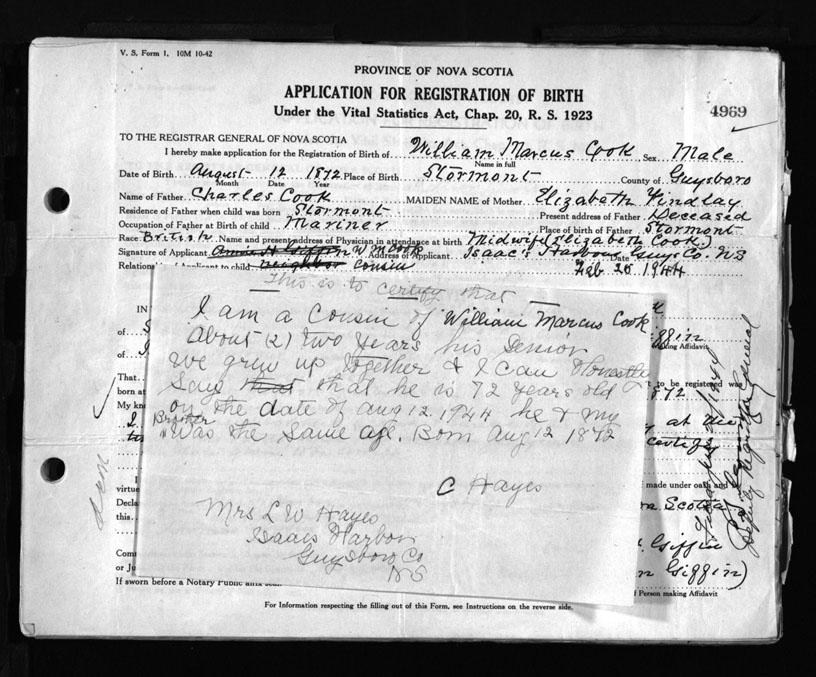 V. S. Form 1. 10M 10-42
PROVINCE OF NOVA SCOTIA
APPLICATION FOR REGISTRATION OF BIRTH
4969
Under the Vital Statistics Act, Chap. 20, R. S. 1923
TO THE REGISTRAR GENERAL OF NOVA SCOTIA
I hereby make application for the Registration of Birth of William Marcus Cook Sex Male
Name in full
Date of Birth August 12 1872 Place of Birth Stormont County of Guysboro
Month Date Year
Name of Father Charles Cook MAIDEN NAME of Mother Elizabeth Findlay
Residence of Father when child was born Stormont Present address of Father Deceased
Occupation of Father at Birth of child Mariner Place of birth of Father Stormont
Race British Name and present address of Physician in attendance at birth Midwife (Elizabeth Cook)
Signature of Applicant Amos H Giffin W M Cook Address of Applicant Isaac's Harbour Guys Co. N.S
Relationship of Applicant to child neighbor cousin Date Feb 25 1944
This is to certify that
I am a Cousin of William Marcus Cook
About (2) two years his Senior
We grew up together & I can Honestly
Say that that he is 72 years old
on the date of Aug 12 1944 he & my
Brother
was the same age. Born Aug 12 1872
C Hayes
Mrs L W Hayes
Isaacs Harbor
Guysboro Co
N S
IN
of
of
That
born at
My kn
virtue
Decla
this
Com
or Ju
If sworn before a Notary Public
Giffin
Making Affidavit
to be registered was
1872
at the
certify
made under oath and
Scotia
Giffin
Giffin)
of Person making Affidavit
Deputy Registrar General
For Information respecting the filling out of this Form, see Instructions on the reverse side.